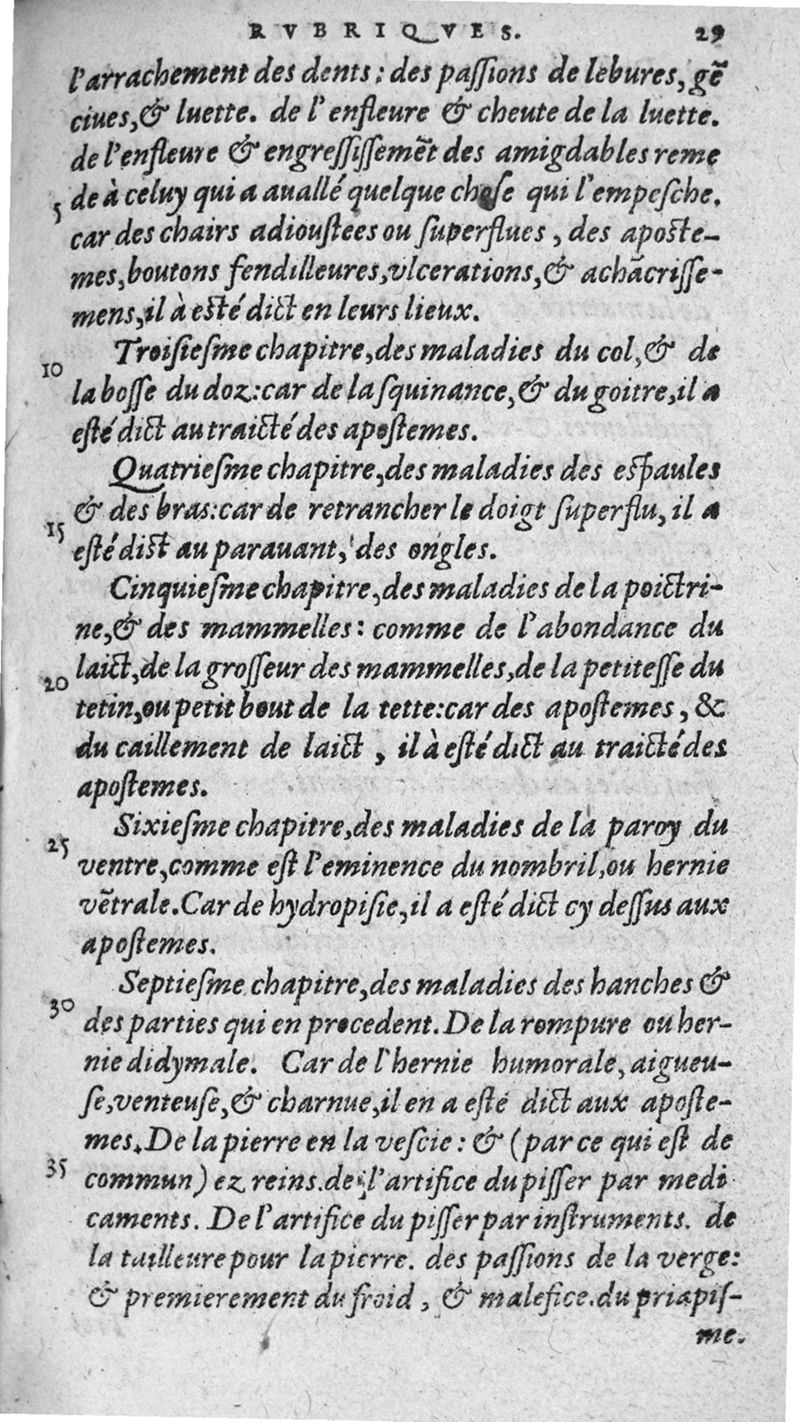 RVBRIQVES. 29
l'arrachement des dents: des paſſions de lebures, gẽ
ciues, & luette. de l'enfleure & cheute de la luette.
de l'enfleure & engreſſiſſemẽt des amigdables reme
5 de à celuy qui a auallé quelque choſe qui l'empeſche.
car des chairs adiouſtees ou ſuperflues, des apoſte-
mes, boutons fendilleures, vlcerations, & achãcriſſe-
mens, il à eſté dict en leurs lieux.
Troiſieſme chapitre, des maladies du col, & de
10 la boſſe du doz: car de la ſquinance, & du goitre, il a
eſté dict au traicté des apoſtemes.
Quatrieſme chapitre, des maladies des eſpaules
& des bras: car de retrancher le doigt ſuperflu, il a
15 eſté dict au parauant, des ongles.
Cinquieſme chapitre, des maladies de la poictri-
ne, & des mammelles: comme de l'abondance du
20 laict, de la groſſeur des mammelles, de la petiteſſe du
tetin, ou petit bout de la tette: car des apoſtemes, &
du caillement de laict, il à eſté dict au traicté des
apoſtemes.
Sixieſme chapitre, des maladies de la paroy du
25 ventre, comme eſt l'eminence du nombril, ou hernie
vẽtrale. Car de hydropiſie, il a eſté dict cy deſſus aux
apoſtemes.
Septieſme chapitre, des maladies des hanches &
30 des parties qui en procedent. De la rompure ou her-
nie didymale. Car de l'hernie humorale, aigueu-
ſe, venteuſe, & charnue, il en a eſté dict aux apoſte-
mes. De la pierre en la veſcie: & (par ce qui eſt de
35 commun) ez reins. de l'artifice du piſſer par medi
caments. De l'artifice du piſſer par inſtruments. de
la tailleure pour la pierre. des paſſions de la verge:
& premierement du froid, & malefice. du priapiſ-
me.